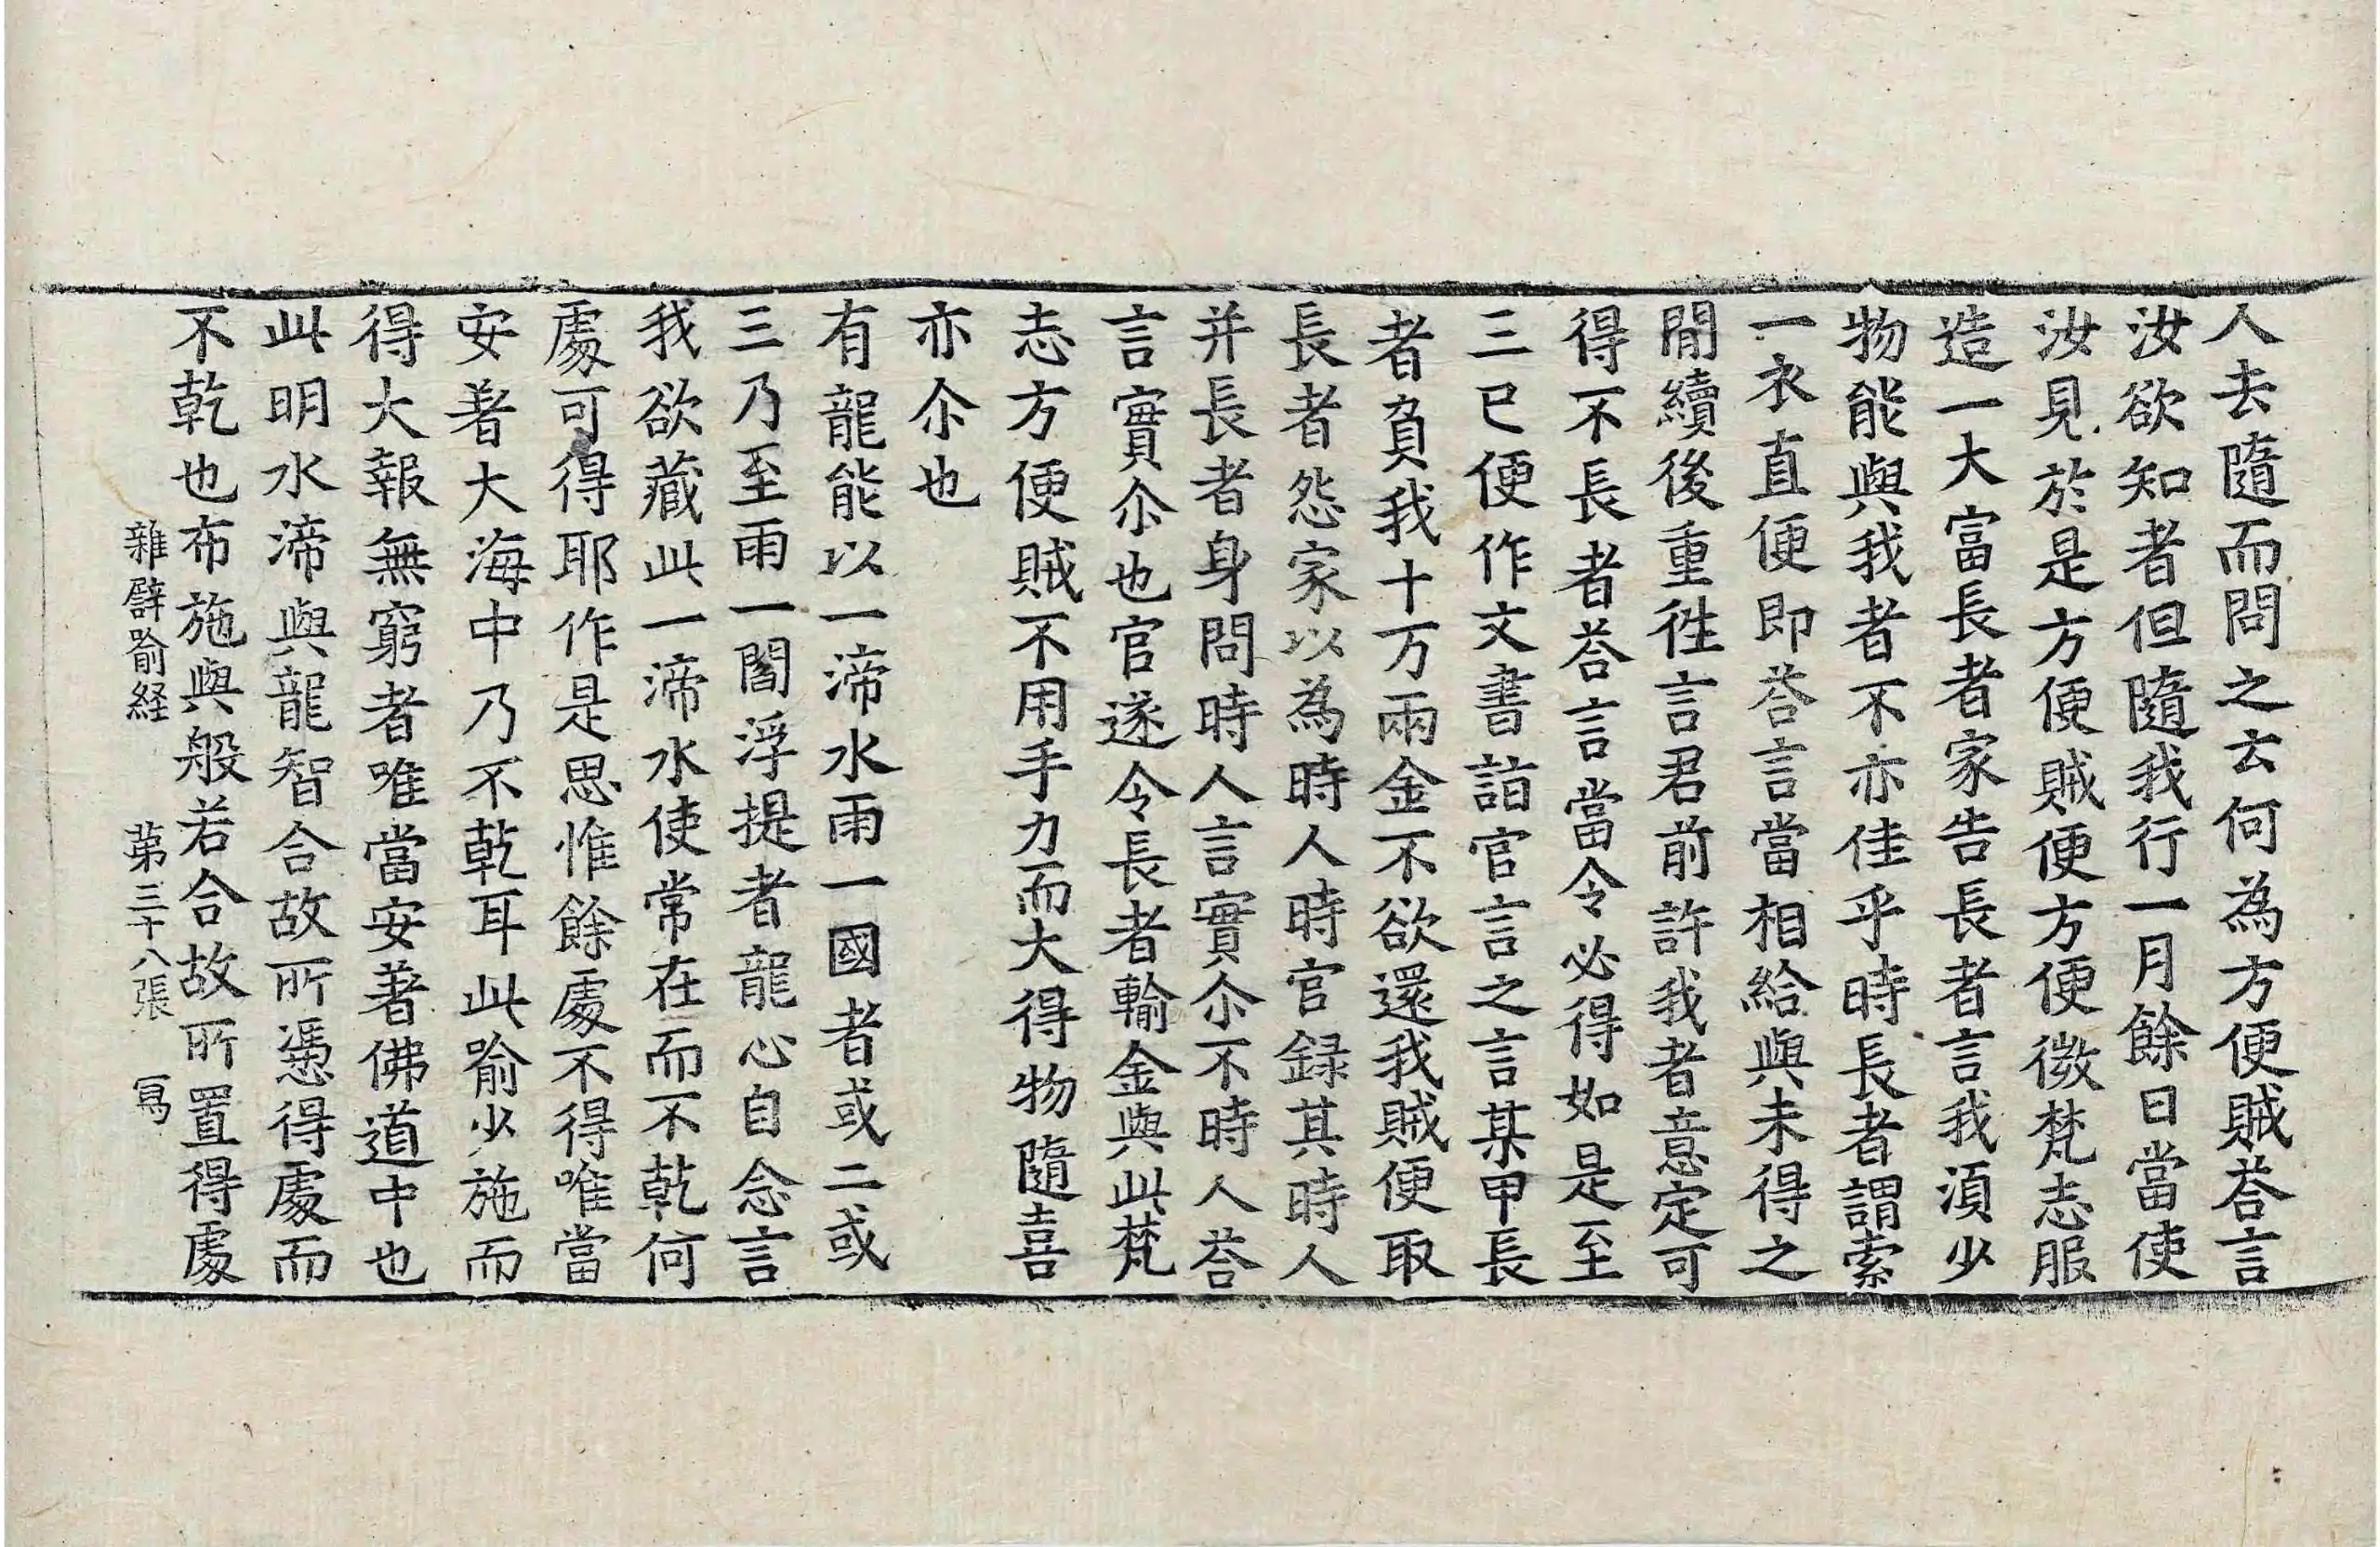 人去隨而問之云何為方便賊荅言
汝欲知者但隨我行一月餘日當使
汝見於是方便賊便方便微梵志服
造一大富長者家告長者言我湏少
物能與我者不亦佳乎時長者謂索
一衣直便即荅言當相給與未得之
閒續後重徃言君前許我者意定可
得不長者荅言當令必得如是至
三已便作文書詣官言之言某甲長
者負我十万兩金不欲還我賊便取
長者怨家以為時人時官録其時人
并長者身問時人言實尒不時人荅
言實尒也官遂令長者輸金與此梵
志方便賊不用手力而大得物隨喜
亦尒也
有龍能以一渧水雨一國者或二或
三乃至雨一閻浮提者龍心自念言
我欲藏此一渧水使常在而不乾何
處可得耶作是思惟餘處不得唯當
安著大海中乃不乾耳此喻少施而
得大報無窮者唯當安著佛道中也
此明水渧與龍智合故所憑得處而
不乾也布施與般若合故所置得處
雜譬喻経 苐三十八張 寫